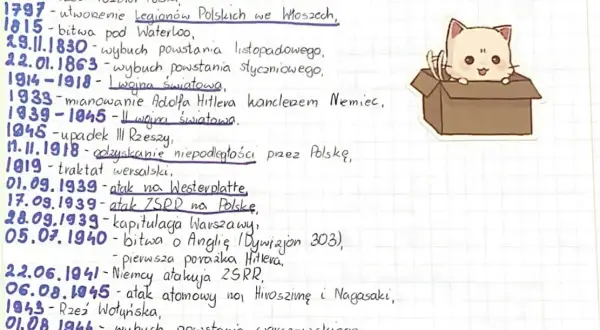 1797 - utworzenie Legionów Polskich we Włoszech,
1815 - bitwa pod Waterloo,
29.11.1830 - wybuch powstania listopadowego,
22.01.1863 - wybuch powstania styczniowego,
1914-1918 - I wojna światowa,
1933 - mianowanie Adolfa Hitlera kanclerzem Niemiec,
1939-1945 - II wojna światowa,
1945 - upadek III Rzeszy,
11.11.1918 - odzyskanie niepodległości przez Polskę,
1919 - traktat wersalski,
01.09.1939 - atak na Westerplatte,
17.09.1939 - atak ZSRR na Polskę,
28.09.1939 - kapitulacja Warszawy,
05.07.1940 - bitwa o Anglię (Dywizjon 303),
- pierwsza porażka Hitlera,
22.06.1941 - Niemcy atakują ZSRR,
06.08.1945 - atak atomowy na Hiroszimę i Nagasaki,
1943 - Rzeź Wołyńska,
01.08.1944 - wybuch powstania warszawskiego